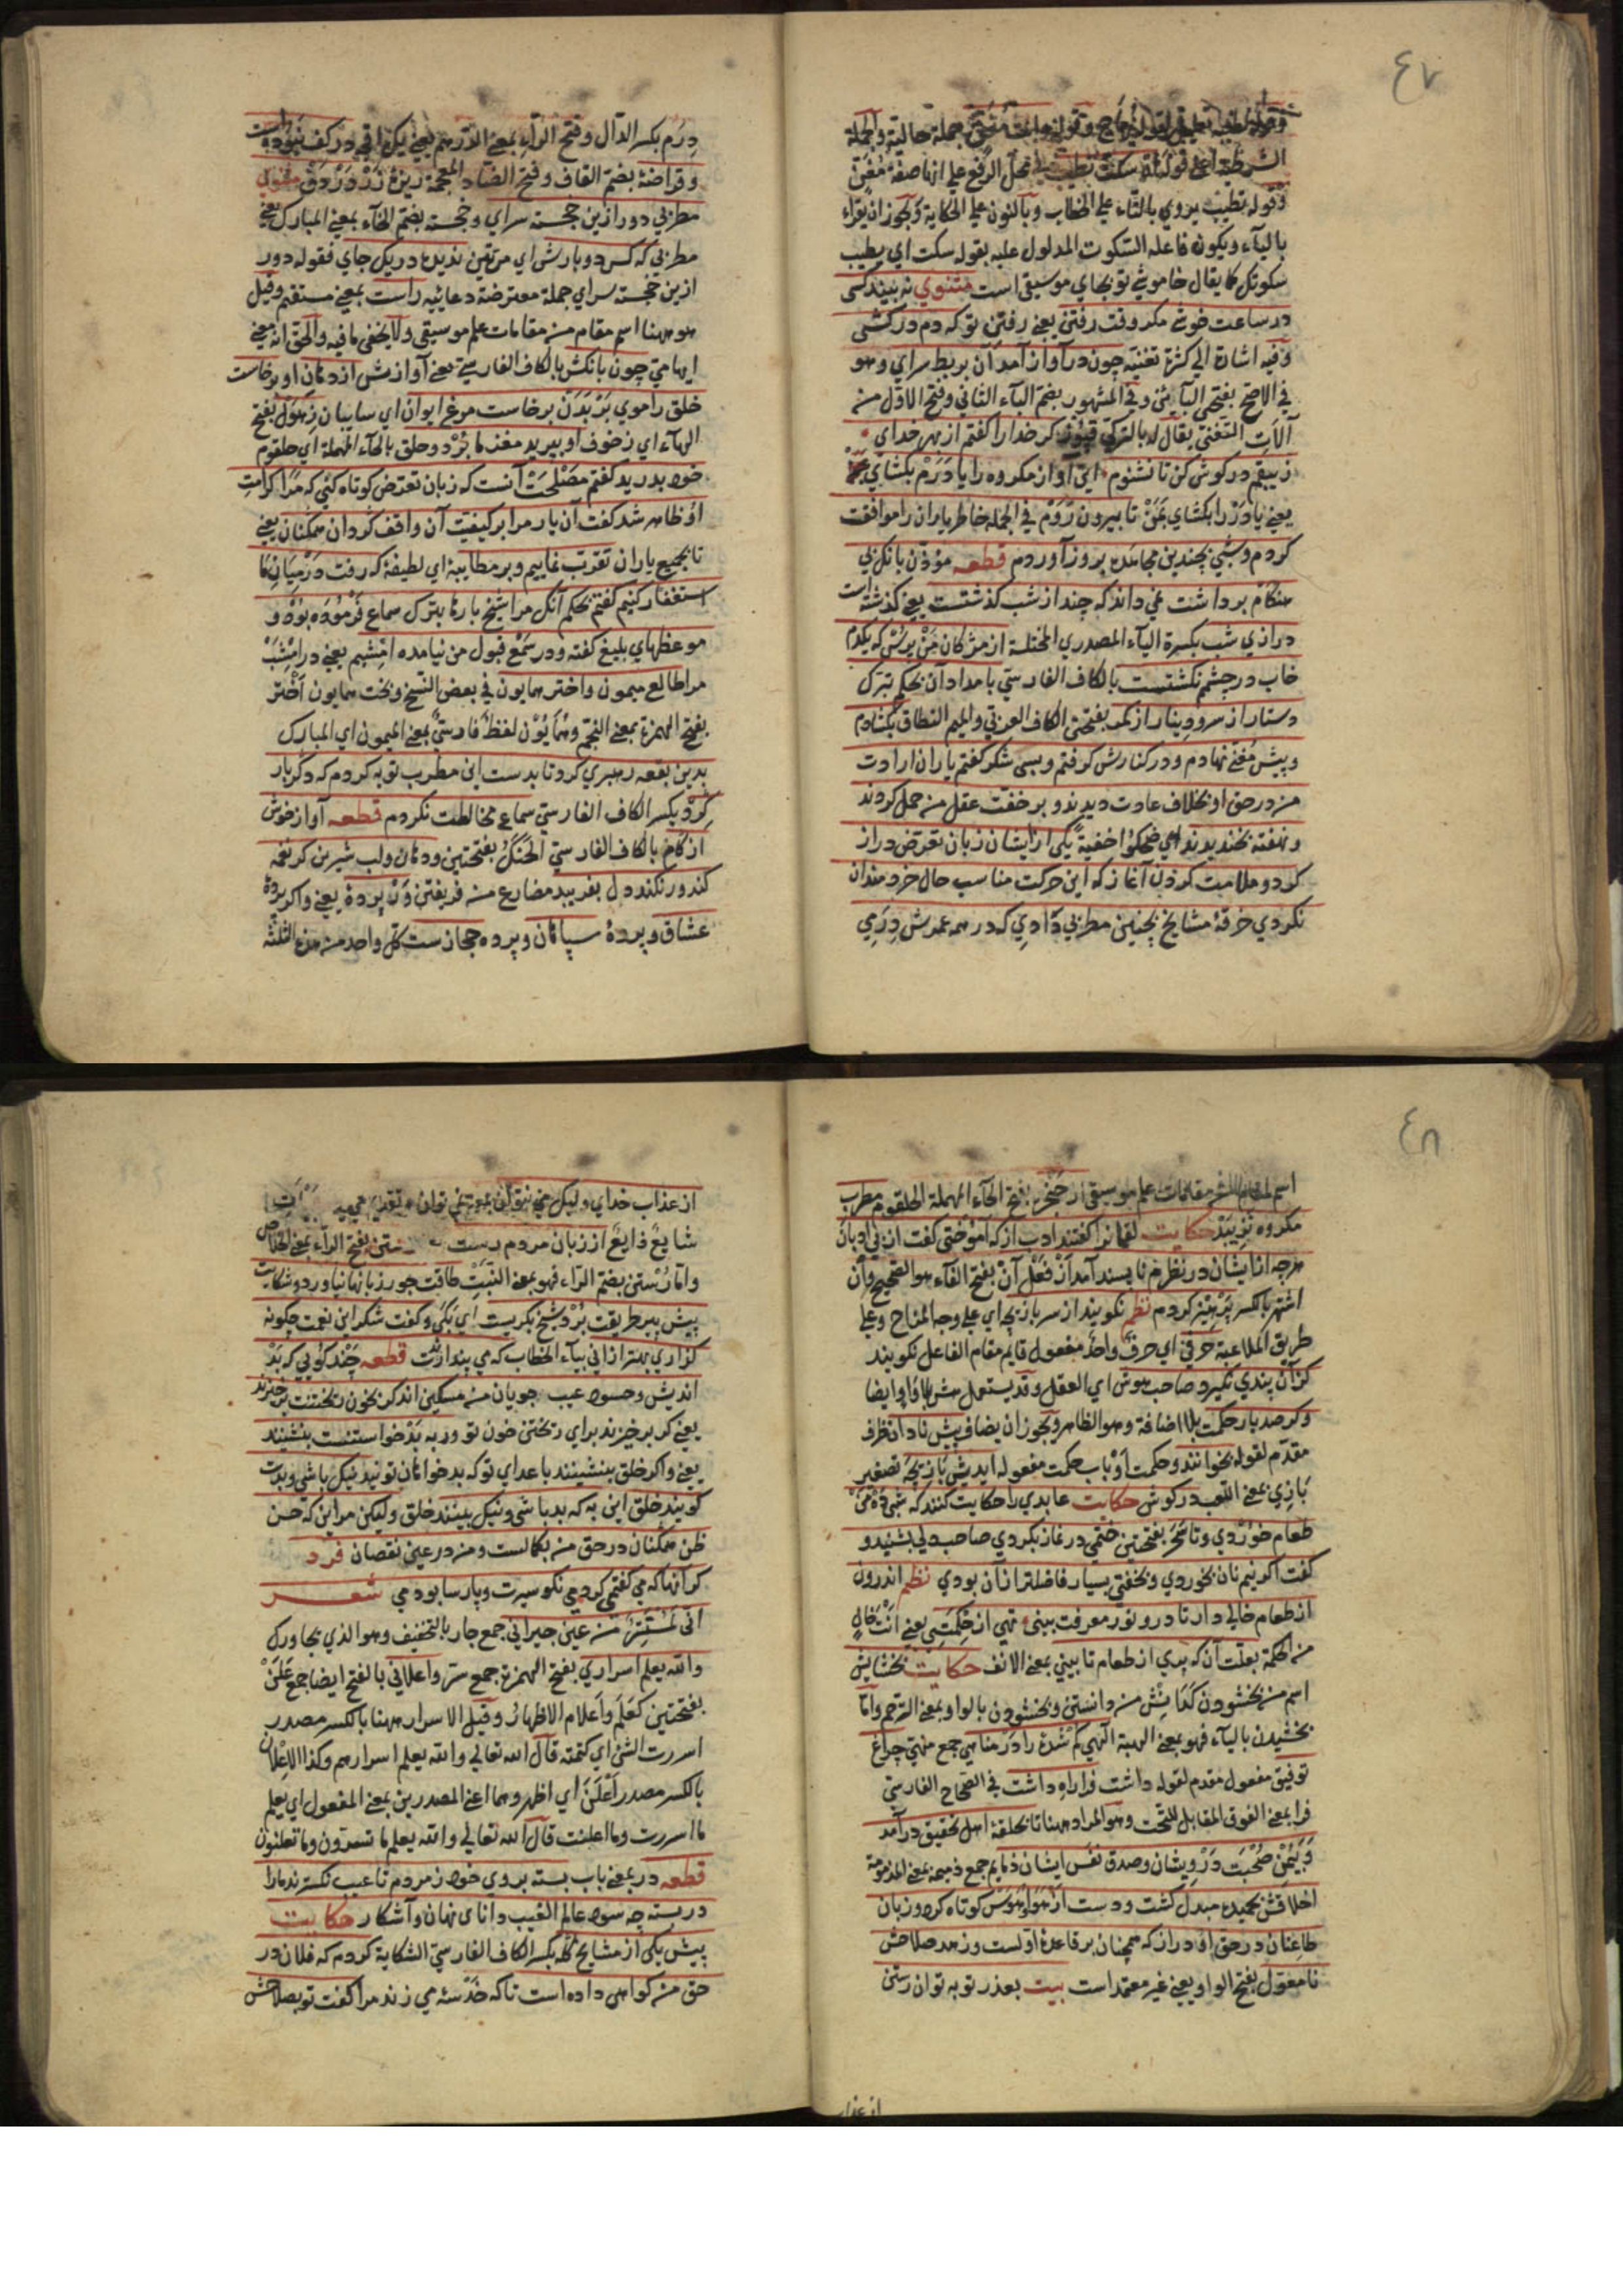 ٤٧
الشرطية اعني قوله ان سكت تطيب في محل الرفع علي انها صفة مُغَنٍّ
وقوله تطيب يروي بالتّاء علي الخطاب وبالنون علي الحكاية ويجوز ان يقراء
بالياء ويكون فاعله السّكوت المدلول عليه بقوله سكت اي يطيب
سكوتك كما يقال خاموشي تو بجاي موسيقي است مثنوي نه بيند كسى
در ساعت خوشي مكر وقت رفتن يعني رفتن تو كه دم دركشى
وفيه اشارة الي كثرة تغنيه چون در آواز آمد آن بربط سراي وهو
في الاصح بفتحي البائين وفي المشهور بضم الباء الثاني وفتح الاوّل من
آلات التغني يقال له بالتركي قپوز كدخدا را كفتم از بهر خداي
زيبقم در كوش كن تا نشنوم اي آواز مكروه را يا دَرَمْ بكشاي
يعني يا دَرْ را بكشاي تا بيرون رَوَمْ في الجمله خاطر ياران را موافقت
كردم وشبي بچندين مجاهده بروز آوردم قطعه مؤذّن بانك بي
هنكام برداشت نمي داند كه چند از شب كذشتست يعني كذشته است
درازي شب بكسرة الياء المصدري المختلسة از مژكان مَنْ پرسْ كه يكدم
خاب در چشمم نكشتست بالكاف الفارسيّ بامدادان بحكم تبرّك
دستار از سر ودينار از كمر بفتحتي الكاف العربيّ والميم النطاق بكشادم
وپيش مُغنّي نهادم ودر كنارش كرفتم وبسى شكر كفتم ياران ارادت
من در حق او بخلاف عادت ديدند وبر خفّت عقل من حمل كردند
ونهفته بخنديدند اي ضحكوا خفيةً يكى از ايشان زبان تعرّض دراز
كرد وملامت كردن آغاز كه اين حركت مناسب حال خردمندان
نكردي خرقهٔ مشايخ بچنين مطربي دادي كه در همه عمرش دِرَمِي
دِرَم بكسر الدّال وفتح الرّاء بمعني الدّرهم يعني يك اقچه در كف نبوده است
وقراضهٔ بضمّ القاف وفتح الضّاد المعجمة ريزهٔ زَرْ دَرْ دَفْ مثنوي
مطربي دور ازين خجسته سراي وخجسته بضم الخاء بمعني المبارك يعني
مطربي كه كس دو بارش اي مرّتين نديده در يك جاي فقوله دور
ازين خجسته سراي جملة معترضة دعائيه راست بمعني مستقيم وقيل
هو ههنا اسم مقام من مقامات علم موسيقي ولا يخفي ما فيه والحق انه يعني
ايهاميّ چون بانكش بالكاف الفارسيّ يعني آوازش از دهان او برخاست
خلق را موي بَرْ بَدَنْ برخاست مرغ ايوان اي سايبان زِهَوْل بفتح
الهاء اي ز خوف او بپريد مغز ما بُرْد وحلق بالحاء المهملة اي حلقوم
خود بدريد كفتم مَصْلَحَتْ آنست كه زبان تعرّض كوتاه كني كه مرا كرامتِ
او ظاهر شد كفت آن يار مرا بر كيفيت آن واقف كردان همكنان يعني
تا بجميع ياران تقرّب نماييم وبر مطايبهٔ اي لطيفهٔ كه رفت در ميان ما
استغفار كنيم كفتم بحكم آنك مرا شيخ بارها بترك سماع فرموده بود و
موعظهاي بليغ كفته ودر سَمْع قبول من نيامده امشبم يعني در امشب
مرا طالع ميمون واختر همايون في بعض النسخ وبخت همايون اَخْتر
بفتح الهمزة بمعني النّجم وهُمايُوْن لفظٌ فارسيٌّ بمعني الميمون اي المبارك
بدين بقعه رهبري كرد تا بدست اين مطرب توبه كردم كه دكر بار
كِرْد بكسر الكاف الفارسيّ سماع مخالطت نكردم قطعه آواز خوش
از كام بالكاف الفارسيّ الحَنَكُ بفتحتين ودهان ولب شيرين كر نغمه
كند ور نكند دل بفريبد مضارع من فريفتن وَرْ پردهٔ يعني واكر پردهٔ
عشاق وپردهٔ سپاهان وپرده حجازست كلّ واحد من هذه الثّلثة
٤٨
اسم لمقام من مقامات علم موسيقي از حنجرهٔ بفتح الحاء المهملة الحلقوم مطرب
مكروه نزيبد حكايت لقمانرا كفتند ادب از كه آموختي كفت از بي ادبان
هرچه از ايشان در نظرم ناپسند آمد از فعل آن بفتح الفاء هو الصّحيح وان
اشتهر بالكسر پَرْهيز كردم نظم نكويند از سر بازيچه اي علي وجه المزاح وعلي
طريق الملاعبة حرفي اي حرفٌ واحدٌ مفعول قايم مقام الفاعل نكويند
كزآن پندي نكيرد صاحب هوش اي العقل وقد يستعمل هش بلا واو ايضا
وكر صد باب حكمت بلا اضافة وهو الظاهر ويجوز ان يضاف پيش نادان ظرف
مقدّم لقوله بخوانند وحكمت او باب حكمت مفعوله آيدش بازيچه تصغير
بازي بمعني اللّعب در كوش حكايت عابدي را حكايت كنند كه شبي ده مَنْ
طعام خوردي وتا سَحَر بفتحتين ختمي در نماز بكردي صاحب دلي بشنيد و
كفت اكر نيم نان بخوردي وبخفتي بسيار فاضلتر از آن بودي نظم اندرون
از طعام خالي دار تا درو نور معرفت بيني تهي از حِكمَتِي يعني اَنْتَ خالٍ
من الحكمة بعلّت آن كه پري از طعام تا بيني بمعني الانف حكايت بخشايش
اسم من بخشودن كَدَانِش من دانستن وبخشودن بالواو بمعني الترحّم وامّا
بخشيدن بالياء فهو بمعني الهبة الٰهي كم شدهٔ را در مناهي جمع منهيّ چراغ
توفيق مفعول مقدم لقوله داشت فرا راه داشت في الصّحاح الفارسيّ
فرا بمعني الفوق المقابل للتّحت وهو المراد ههنا تا بحلقهٔ اهل تحقيق درآمد
وَبَيُمْنِ صُحْبَت دَرْوِيشان وصدق نفس ايشان ذمايم جمع ذميمه بمعني المذمومة
اخلاقش بحميده مبدل كشت ودست از هوا وهوس كوتاه كرد وزبان
طاعنان در حقّ او دراز كه همچنان بر قاعدهٔ اوّلست وزهد صلاحش
نامعوّل بفتح الواو يعني غير معتمد است بيت بعذر توبه توان رستن
از عذاب
از عذاب خداي وليك مي نتوان بمعني نمي توان
شايعٌ ذايعٌ از زبان مردم رست رستن بفتح الرّاء بمعني الخلاص
وامّا رُستن بضمّ الرّاء فهو بمعني النَّبْتِ طاقت جور زبانها نياورد وشكايت
پيش پير طريقت بُرْد شيخ بكريست اي بَكَي وكفت شكر اين نعمت چكونه
كزاري بهتر از اني بياء الخطاب كه مي پندارندت قطعه چَنْد كُويي كه بَدْ
انديش وحسود عيب جويان من مسكين اند كه بخون ريختنت برخيزند
يعني كه برخيزند براي ريختن خون تو ور به بَدْ خواستنت بنشينند
يعني واكر خلق بنشينند با عداي تو كه بد خواهان تو نيد نيك باشي وبدت
كويند خلق اين به كه بد باشي ونيك بينند خلق وليكن مرا بين كه حسن
ظنّ همكنان در حق من بكمالست ومن در عين نقصان فرد
كر آنها كه مي كفتمى كردمي نكو سيرت وپارسا بودمي شعر
انّي لَمُسْتَتِرٌ من عين جيراني جمع جار بالتخفيف وهو الذي يجاورك
والله يعلم اسراري بفتح الهمزة جمع سرّ واعلاني بالفتح ايضا جمع عَلَنْ
بفتحتين كعَلَم وأعلام الاظهارُ وقيل الاسرار ههنا بالكسر مصدر
اسررت الشئ اي كتمته قال الله تعالي والله يعلم اسرارهم وكذا الاِعْلان
بالكسر مصدر اَعْلَنَ اي اظهر وهما اعني المصدرين بمعني المفعول اي يعلم
ما اسررت وما اعلنت قال الله تعالي والله يعلم ما تسرّون وما تعلنون
قطعه در بمعني باب بسته بروي خود ز مردم تا عيب نكسترند مارا
در بسته چه سود عالم الغيب داناى نهان وآشكار حكايت
پيش يكى از مشايخ كله بكسر الكاف الفارسيّ الشكاية كردم كه فلان در
حق من كواهى داده است تا كه خَدْشه مي زند مرا كفت تو بصلاحش